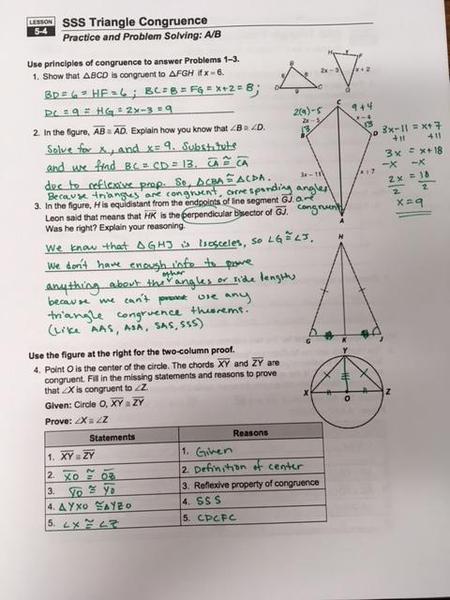 LESSON
5-4
SSS Triangle Congruence
Practice and Problem Solving: A/B
Use principles of congruence to answer Problems 1–3.
1. Show that △BCD is congruent to △FGH if x = 6.
BD = 6 = HF = 6 ; BC = 8 = FG = x+2 = 8 ;
DC = 9 = HG = 2x-3 = 9
2x − 3
x + 2
2. In the figure, AB ≅ AD. Explain how you know that ∠B ≅ ∠D.
Solve for x, and x = 9. Substitute
and we find BC = CD = 13. CA ≅ CA
due to reflexive prop. So, △CBA ≅ △CDA.
Because triangles are congruent, corresponding angles
are congruent.
2(9)-5
9+4
13
13
3x − 11
x + 7
3x-11 = x+7
+11 +11
3x = x+18
-x -x
2x = 18
2 2
x = 9
3. In the figure, H is equidistant from the endpoints of line segment GJ.
Leon said that means that HK is the perpendicular bisector of GJ.
Was he right? Explain your reasoning.
We know that △GHJ is Isosceles, so ∠G ≅ ∠J.
We don't have enough info to prove
anything about the other angles or side lengths
because we can't use any
triangle congruence theorems.
(Like AAS, ASA, SAS, SSS)
H
G
K
J
Use the figure at the right for the two-column proof.
4. Point O is the center of the circle. The chords XY and ZY are
congruent. Fill in the missing statements and reasons to prove
that ∠X is congruent to ∠Z.
Given: Circle O, XY ≅ ZY
Prove: ∠X ≅ ∠Z
Y
X
O
Z
Statements
Reasons
1. XY ≅ ZY
1. Given
2. XO ≅ OZ
2. Definition of center
3. YO ≅ YO
3. Reflexive property of congruence
4. △YXO ≅ △YZO
4. SSS
5. ∠X ≅ ∠Z
5. CPCFC